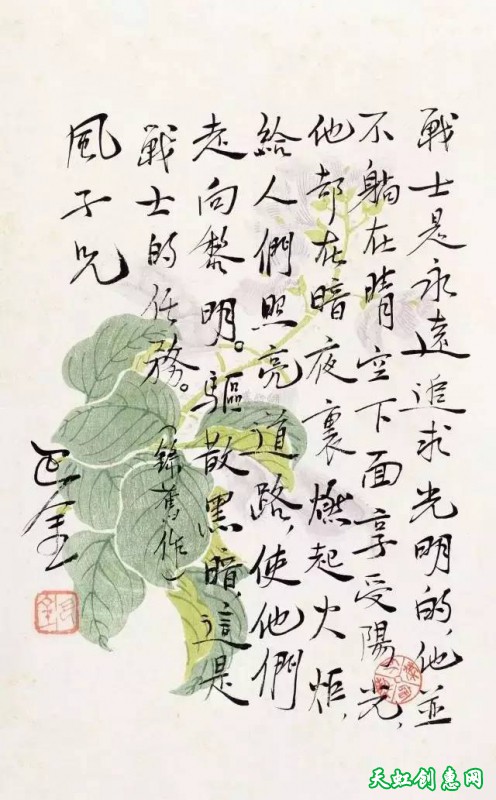 戰士是永遠追求光明的,他並
不躺在晴空下面享受陽光,
他却在暗夜裏燃起火炬,
給人們照亮道路,使他們
走向黎明。驅散黑暗,這是
戰士的任務。
(錄舊作)
風子兄
巴金
天虹创意网